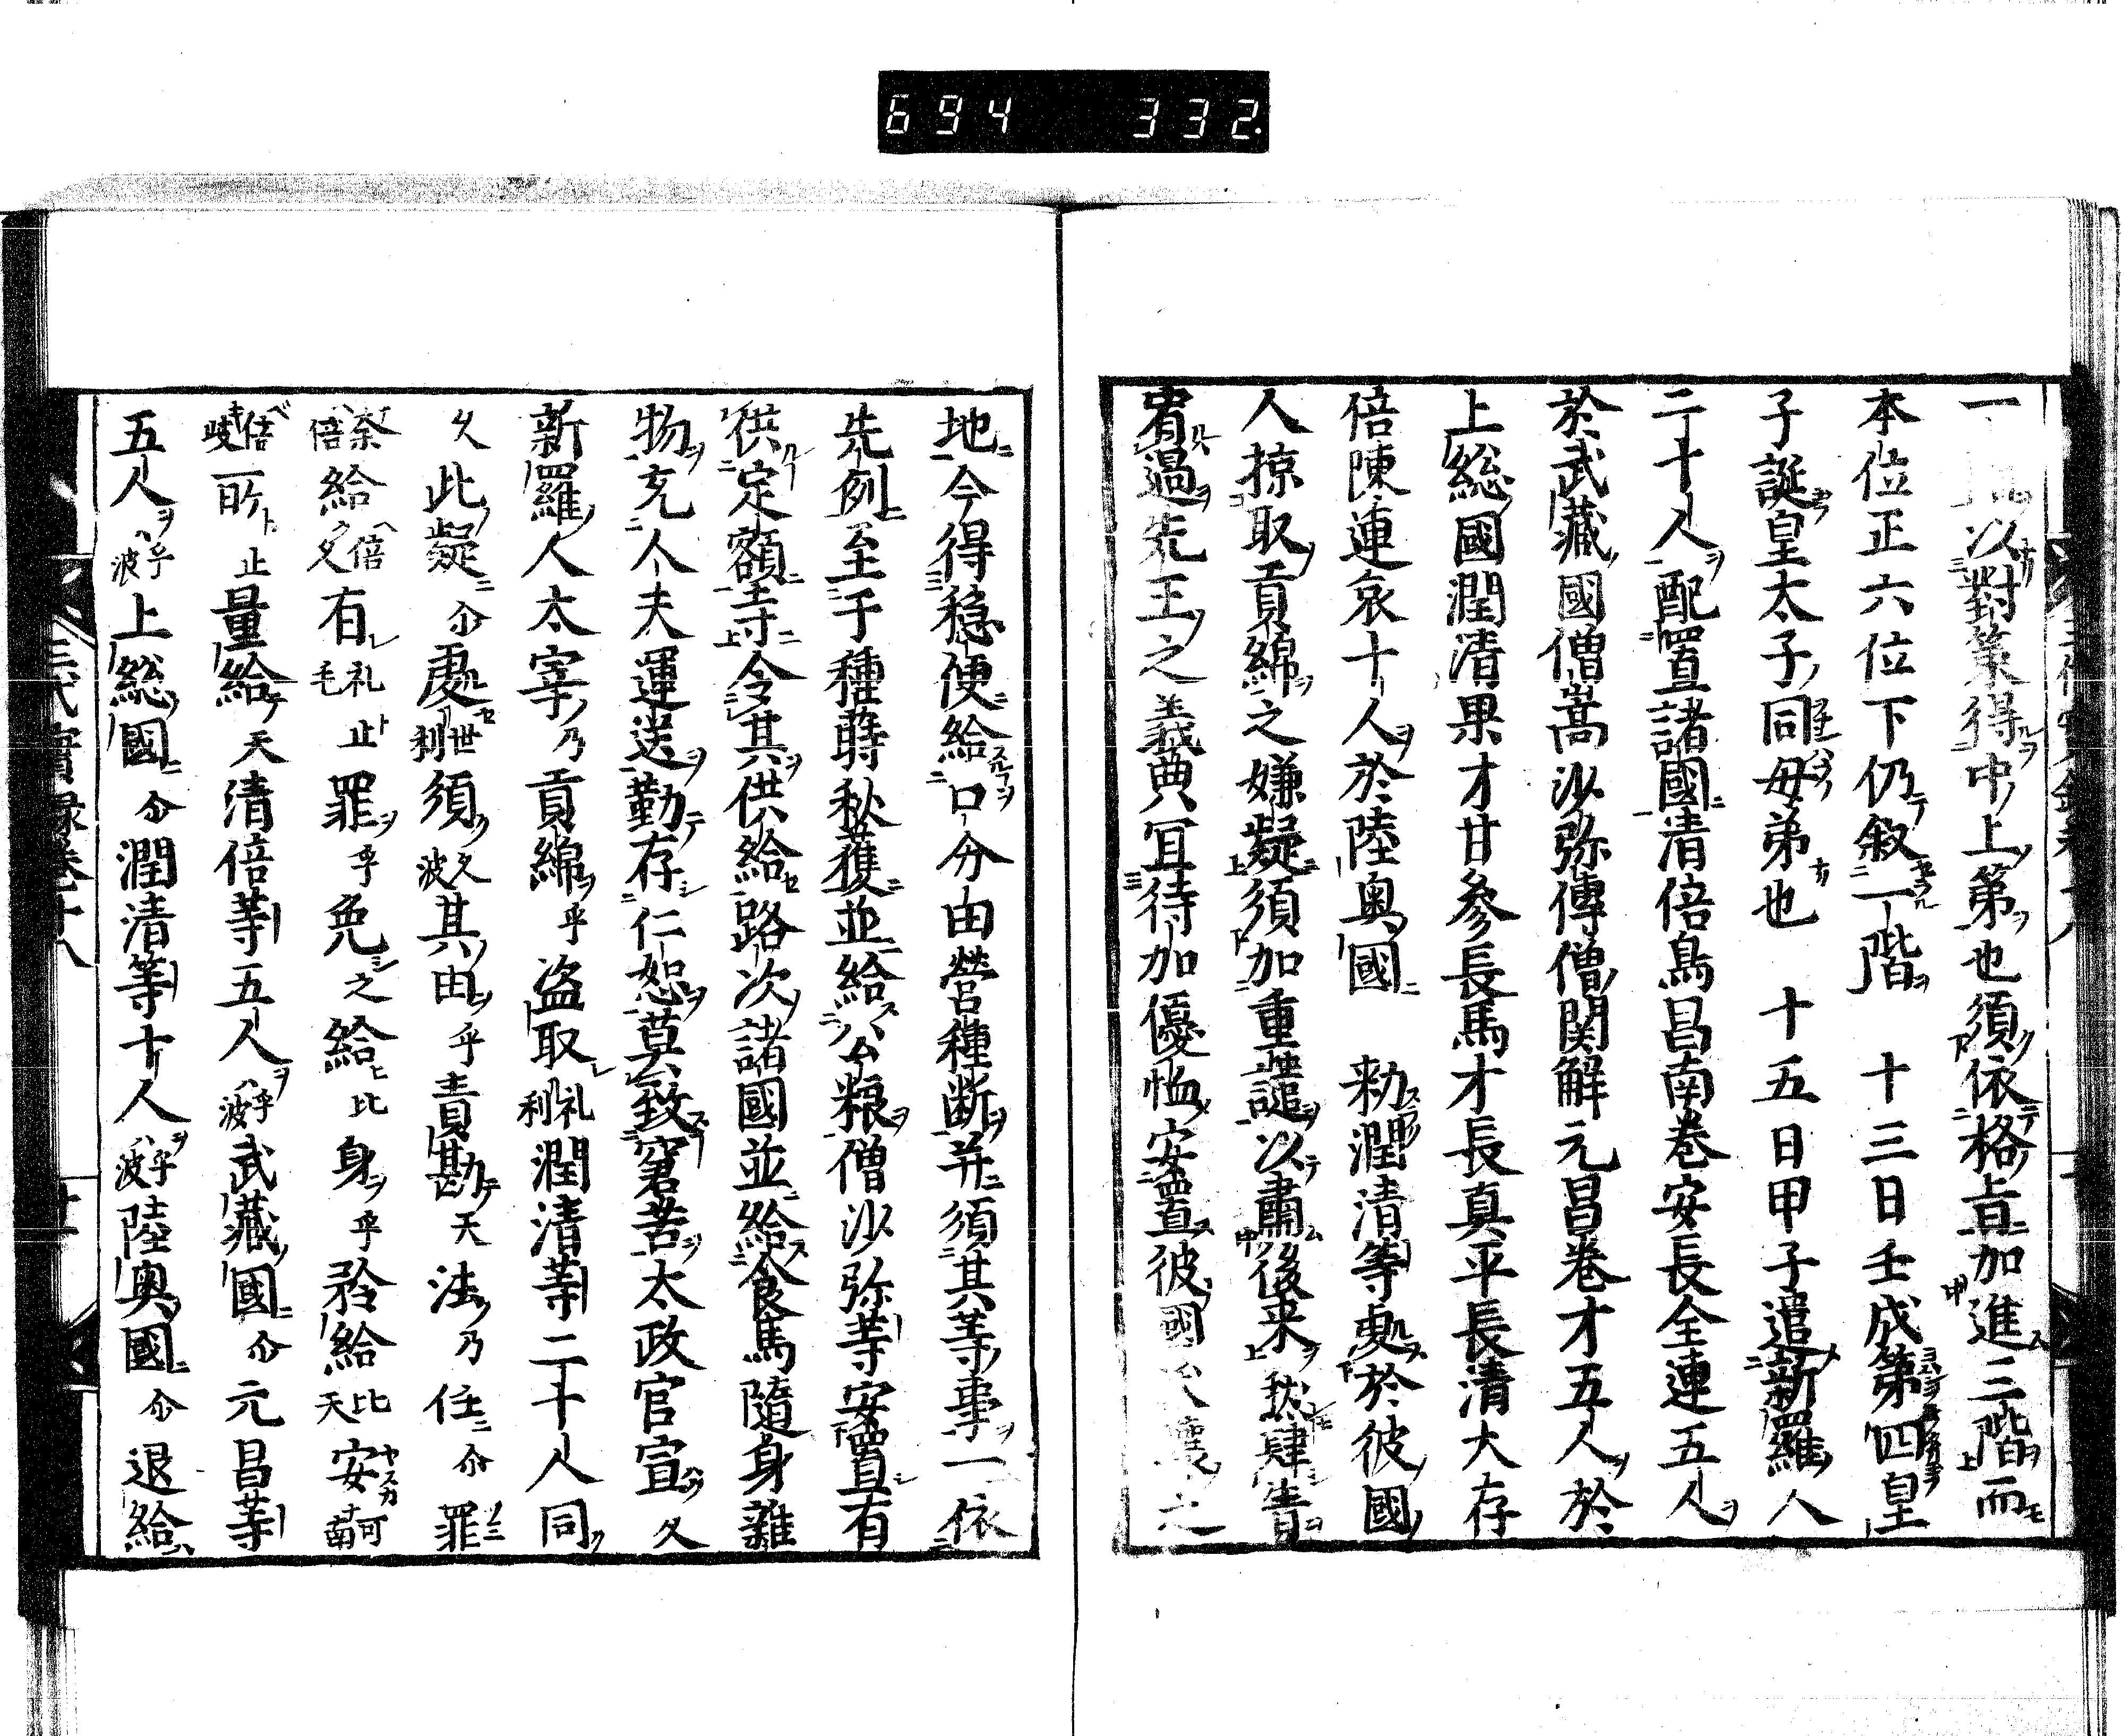 694 332.
一以對策得中上第也須依格旨加進三階而
本位正六位下仍叙一階 十三日壬戌第四皇
子誕皇太子同母弟也 十五日甲子遣新羅人
二十人配置諸國清倍鳥昌南卷安長全連五人
於武藏國僧嵩沙弥傳僧関解元昌卷才五人於
上総國潤清果才甘參長馬才長真平長清大存
倍陳連哀十人於陸奥國 勅潤清等処於彼國
人掠取貢綿之嫌疑須加重譴以肅後来然肆眚
宥過先王之義典冝待加優恤安置彼國之
地今得穏便給口分田營種断并須其等事一依
先例至于種蒔秋獲並給公粮僧沙弥等安置有
供定額寺令其供給路次諸國並給食馬隨身雜
物充人夫運送勤存仁恕莫致窘苦太政官宣久
新羅人太宰乃貢綿乎盗取礼利潤清等二十人同
久此疑尒處世利須久波其由乎責勘天法乃任尒罪
奈倍給倍久有礼毛止罪乎免之給比身乎矜給比天安可南
倍岐所止量給天清倍等五人乎波武藏國尒元昌等
五人乎波上総國尒潤清等十人乎波陸奥國尒退給
三代實録卷十八